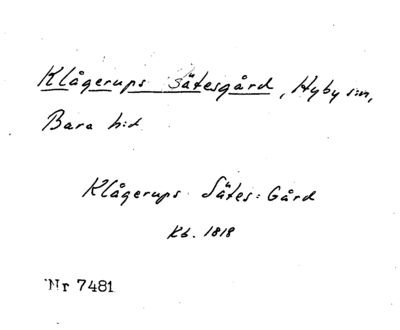 Klågerups sätesgård, Hyby s:n,
Bara h:d
Klågerups Sätes: Gård
Kb. 1818
Nr 7481